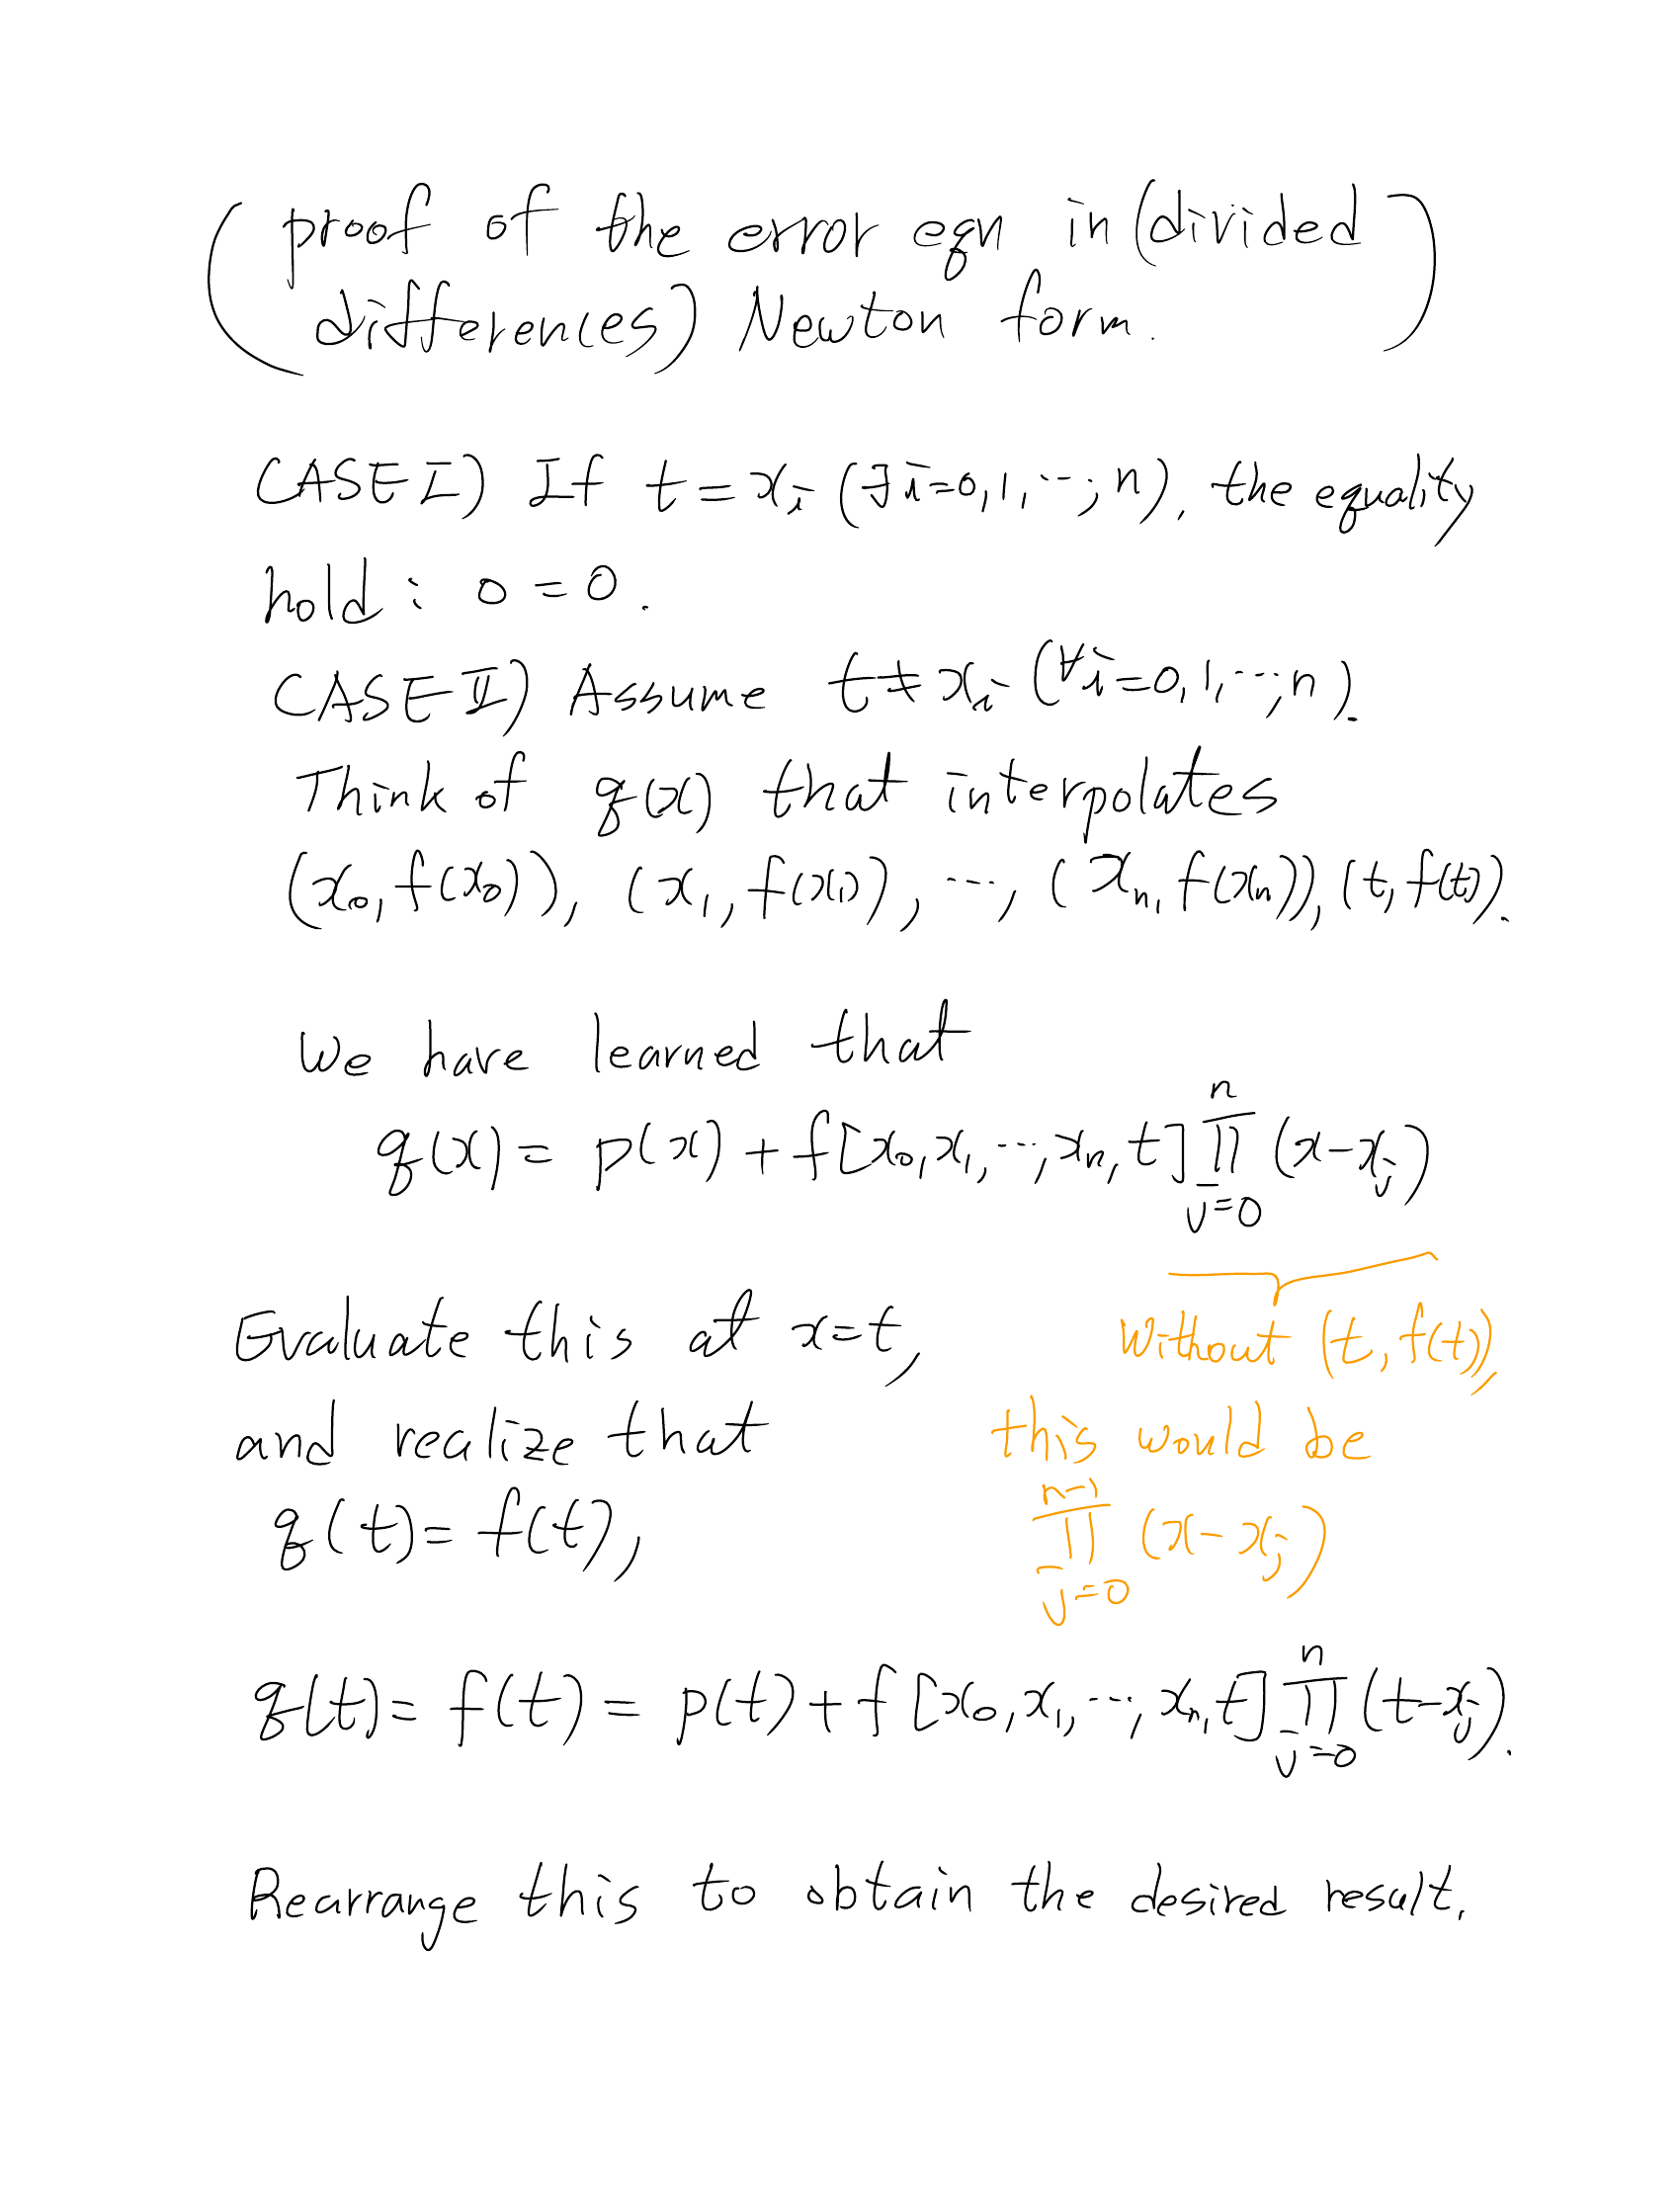 (proof of the error eqn in (divided
differences) Newton form.)
CASE I) If t = xᵢ (∃i=0,1,⋯,n), the equality
hold : 0 = 0.
CASE II) Assume t ≠ xᵢ (∀i=0,1,⋯,n).
Think of q(x) that interpolates
(x₀, f(x₀)), (x₁, f(x₁)), ⋯, (xₙ, f(xₙ)), (t, f(t)).
We have learned that
q(x) = p(x) + f[x₀, x₁, ⋯, xₙ, t] ∏_{j=0}^{n} (x-xⱼ)
Evaluate this at x=t,
and realize that
q(t) = f(t),
without (t, f(t)),
this would be
∏_{j=0}^{n-1} (x-xⱼ)
q(t) = f(t) = p(t) + f[x₀, x₁, ⋯, xₙ, t] ∏_{j=0}^{n} (t-xⱼ).
Rearrange this to obtain the desired result.